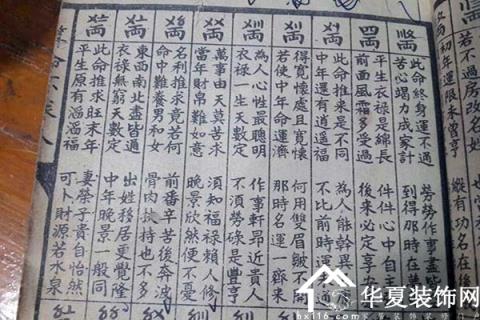 若不過房改名姓
縱有功名在後
初年運限未曾亨
此命終身運不通
勞勞作事盡
苦心竭力成家計
到得那時在
平生衣祿是綿長
件件心中自
前面風霜多受過
後來必定享
此命推來是不同
為人能幹異
中年還有逍遥福
不比前時運
得寬懷處且寬懷
何用雙眉皺不開
若使中年命運濟
那時名運一齊來
為人心性最聰明
作事軒昂近貴人
衣祿一生天數定
不須勞碌是豐亨
萬事由天莫苦求
須知福祿賴人修
當年財帛難如意
晚景欣然便不憂
名利推求竟若何
前番辛苦後奔波
命中難養男和女
骨肉扶持也不多
東西南北盡皆通
出姓移居更覺隆
衣祿無窮天數定
中年晚景一般同
此命推求旺末年
妻榮子貴自怡然
平生原有滔滔福
可卜財源若水泉
华夏装饰网
hx116.com